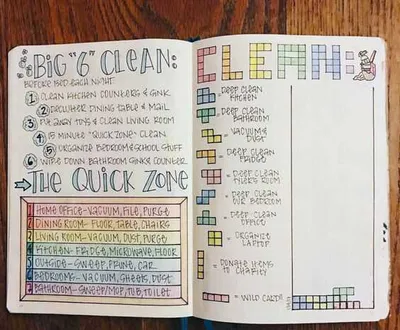 BIG "6" CLEAN:
BEFORE BED EACH NIGHT
1 CLEAN KITCHEN COUNTERS & SINK
2 DECLUTTER DINING TABLE & MAIL
3 PUT AWAY TOYS & CLEAN LIVING ROOM
4 15 MINUTE "QUICK ZONE" CLEAN
5 ORGANIZE BEDROOM & SCHOOL STUFF
6 WIPE DOWN BATHROOM SINK & COUNTER
THE QUICK ZONE
1 HOME OFFICE - VACUUM, FILE, PURGE
2 DINING ROOM - FLOOR, TABLE, CHAIRS
3 LIVING ROOM - VACUUM, DUST, PURGE
4 KITCHEN - FRIDGE, MICROWAVE, FLOOR
5 OUTSIDE - SWEEP, PRUNE, CAR
6 BEDROOMS - VACUUM, SHEETS, DUST
7 BATHROOM - SWEEP/MOP, TUB, TOILET
CLEAN:
= DEEP CLEAN
KITCHEN
= DEEP CLEAN
BATHROOM
= VACUUM &
DUST
= DEEP CLEAN
FRIDGE
= DEEP CLEAN
TYLER'S ROOM
= DEEP CLEAN
OUR BEDROOM
= DEEP CLEAN
OFFICE
= ORGANIZE
LAPTOP
= DONATE ITEMS
TO CHARITY
= WILD CARD!